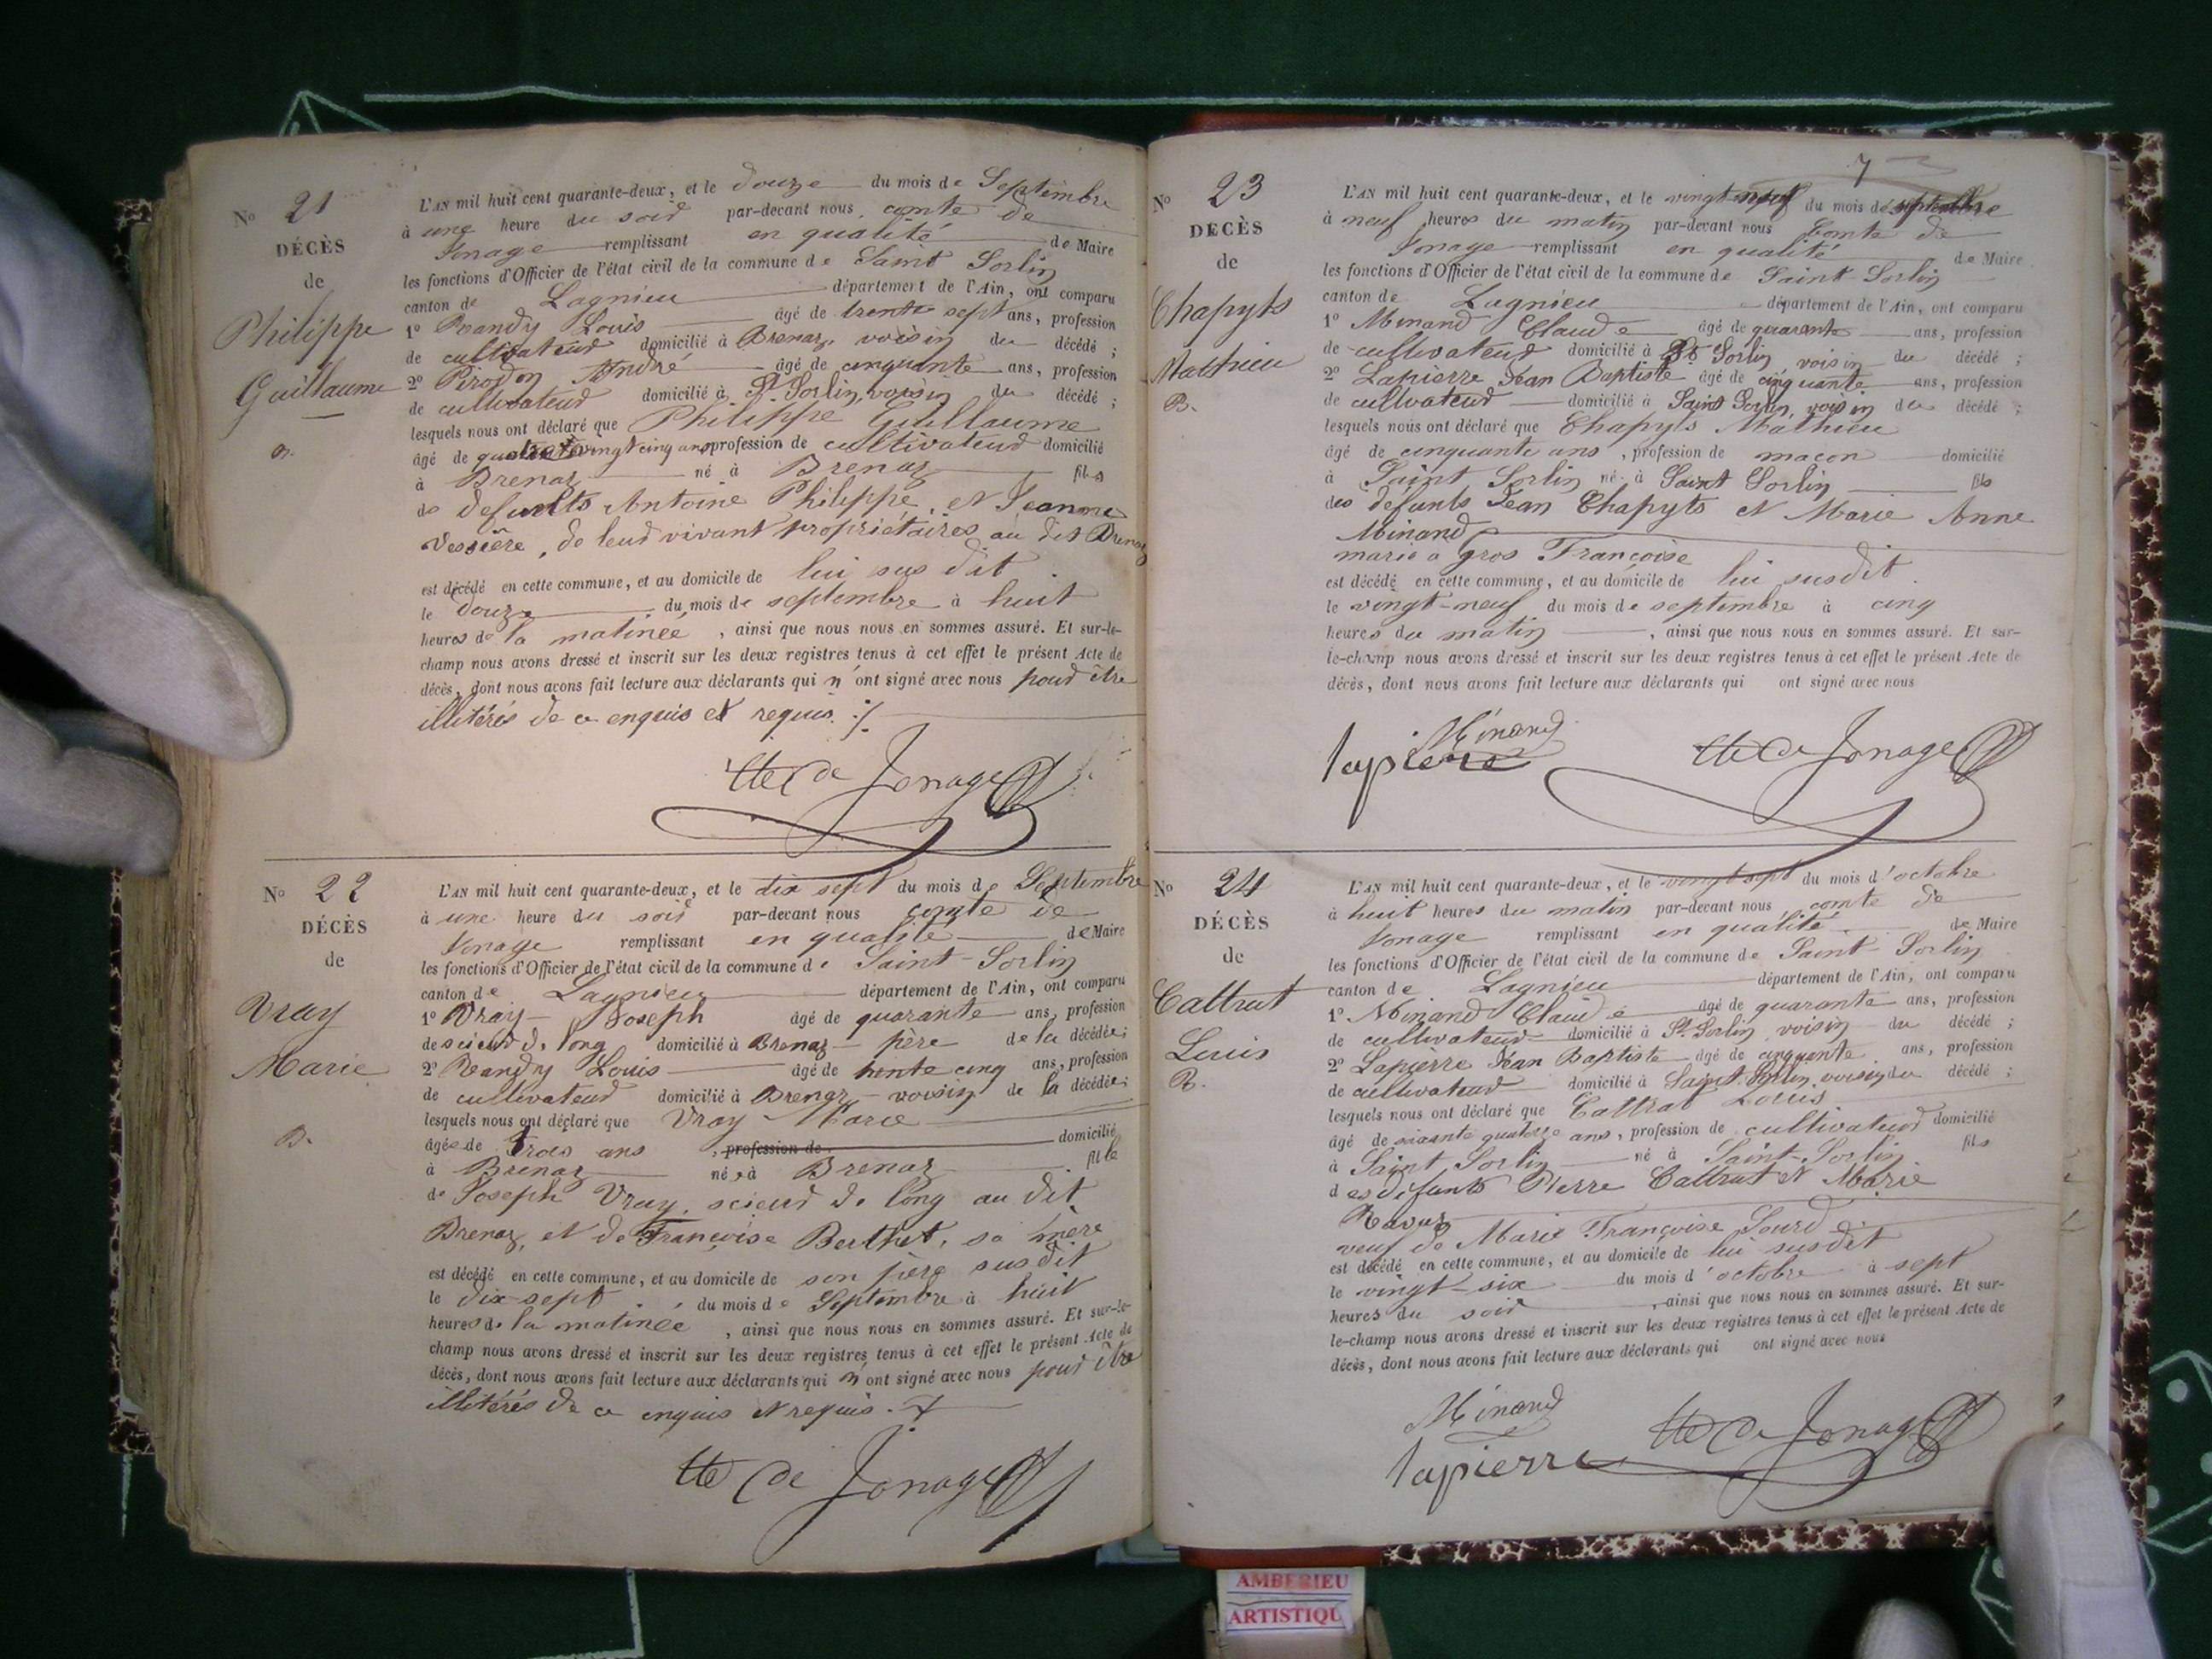 N° 21
DÉCÈS
de
Philippe
Guillaume
B.
L'AN mil huit cent quarante-deux, et le douze du mois de Septembre
à une heure du soir par-devant nous, comte de
Jonage remplissant en qualité de Maire
les fonctions d'Officier de l'état civil de la commune de Saint Sorlin
canton de Lagnieu département de l'Ain, ont comparu
1° Randy Louis âgé de trente sept ans, profession
de cultivateur domicilié à Brenaz, voisin du décédé ;
2° Pirodon André âgé de cinquante ans, profession
de cultivateur domicilié à St Sorlin, voisin du décédé ;
lesquels nous ont déclaré que Philippe Guillaume
âgé de quatre vingt cinq ans profession de cultivateur domicilié
à Brenaz né à Brenaz fils
de defunts Antoine Philippe, et Jeanne
Vessière, de leur vivant propriétaires au dit Brenaz
est décédé en cette commune, et au domicile de lui sus dit
le douze du mois de septembre à huit
heures de la matinée, ainsi que nous nous en sommes assuré. Et sur-le-
champ nous avons dressé et inscrit sur les deux registres tenus à cet effet le présent Acte de
décès, dont nous avons fait lecture aux déclarants qui n'ont signé avec nous pour être
illitérés de ce enquis et requis ./.
Cte de Jonage
N° 22
DÉCÈS
de
Vray
Marie
B.
L'AN mil huit cent quarante-deux, et le dix sept du mois de Septembre
à une heure du soir par-devant nous comte de
Jonage remplissant en qualité de Maire
les fonctions d'Officier de l'état civil de la commune de Saint-Sorlin
canton de Lagnieu département de l'Ain, ont comparu
1° Vray Joseph âgé de quarante ans, profession
de scieur de long domicilié à Brenaz père de la décédée;
2° Randy Louis âgé de trente cinq ans, profession
de cultivateur domicilié à Brenaz - voisin de la décédée;
lesquels nous ont déclaré que Vray Marie
âgée de trois ans, profession de domicilié
à Brenaz née à Brenaz fille
de Joseph Vray, scieur de long au dit
Brenaz, et de Françoise Berthet, sa mère
est décédé en cette commune, et au domicile de son père susdit
le dix-sept du mois de Septembre à huit
heures de la matinée, ainsi que nous nous en sommes assuré. Et sur-le-
champ nous avons dressé et inscrit sur les deux registres tenus à cet effet le présent Acte de
décès, dont nous avons fait lecture aux déclarants qui n'ont signé avec nous pour être
illitérés de ce enquis et requis.
Cte de Jonage
7
N° 23
DÉCÈS
de
Chapyts
Mathieu
B.
L'AN mil huit cent quarante-deux, et le vingt neuf du mois de septembre
à neuf heures du matin par-devant nous Comte de
Jonage remplissant en qualité de Maire
les fonctions d'Officier de l'état civil de la commune de Saint-Sorlin
canton de Lagnieu département de l'Ain, ont comparu
1° Minand Claude âgé de quarante ans, profession
de cultivateur domicilié à St Sorlin voisin du décédé ;
2° Lapierre Jean Baptiste âgé de cinquante ans, profession
de cultivateur domicilié à Saint Sorlin, voisin du décédé ;
lesquels nous ont déclaré que Chapyts Mathieu
âgé de cinquante ans, profession de maçon domicilié
à Saint Sorlin né à Saint Sorlin fils
des défunts Jean Chapyts et Marie Anne
Minand
marié a gros Françoise
est décédé en cette commune, et au domicile de lui susdit.
le vingt-neuf du mois de septembre à cinq
heures du matin, ainsi que nous nous en sommes assuré. Et sur-
le-champ nous avons dressé et inscrit sur les deux registres tenus à cet effet le présent Acte de
décès, dont nous avons fait lecture aux déclarants qui ont signé avec nous
Minand
lapierre Cte de Jonage
N° 24
DÉCÈS
de
Cattrut
Louis
B.
L'AN mil huit cent quarante-deux, et le vingt sept du mois d'octobre
à huit heures du matin par-devant nous comte de
Jonage remplissant en qualité de Maire
les fonctions d'Officier de l'état civil de la commune de Saint-Sorlin
canton de Lagnieu département de l'Ain, ont comparu
1° Minand Claude âgé de quarante ans, profession
de cultivateur domicilié à St Sorlin voisin du décédé ;
2° Lapierre Jean Baptiste âgé de cinquante ans, profession
de cultivateur domicilié à Saint Sorlin, voisin du décédé ;
lesquels nous ont déclaré que Cattrut Louis
âgé de soixante quatorze ans, profession de cultivateur domicilié
à Saint Sorlin né à Saint-Sorlin fils
des défunts Pierre Cattrut et Marie
Ravaz
veuf de Marie Françoise Sourd
est décédé en cette commune, et au domicile de lui susdit
le vingt-six du mois d'octobre à sept
heures du soir, ainsi que nous nous en sommes assuré. Et sur-
le-champ nous avons dressé et inscrit sur les deux registres tenus à cet effet le présent Acte de
décès, dont nous avons fait lecture aux déclarants qui ont signé avec nous
Minand
lapierre Cte de Jonage
AMBERIEU
ARTISTIQU